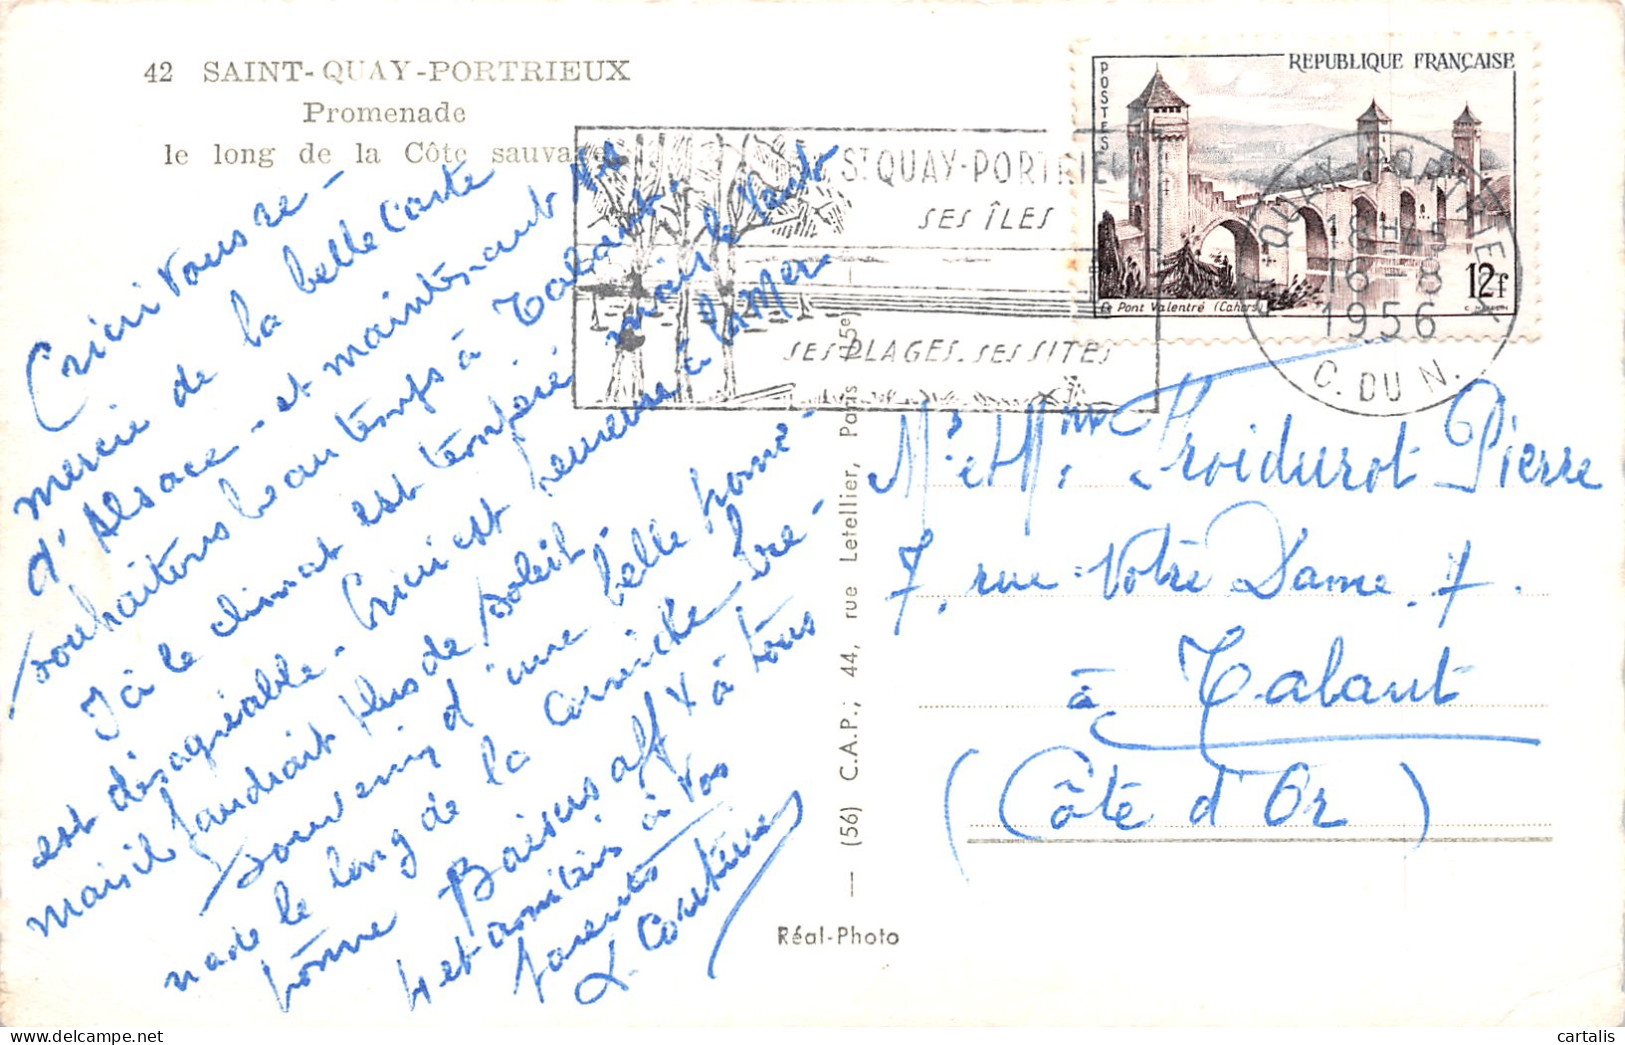 42 SAINT-QUAY-PORTRIEUX
Promenade
le long de la Côte sauvage
Cricri vous re-
mercie de la belle carte
d'Alsace - et maintenant
souhaitons beau temps à Talant.
Ici le climat est tempéré mais le vent
est désagréable - Cricri est heureuse à la Mer
mais il faudrait plus de soleil.
Souvenir d'une belle prome-
nade le long de la corniche bre-
tonne Baisers affx à tous
4 et amitiés à vos
parents
REPUBLIQUE FRANÇAISE
POSTES
12f
Pont Valentré (Cahors)
ST QUAY-PORTRIEUX
SES ÎLES
SES PLAGES. SES SITES
ST QUAY-PORTRIEUX
18H45
16-8
1956
C. DU N.
Mr et Mme Froidurot Pierre
7, rue Notre Dame. 7.
à Talant
(Côte d'Or)
(56) C.A.P.; 44, rue Letellier, Paris (15e)
Réal-Photo
cartalis